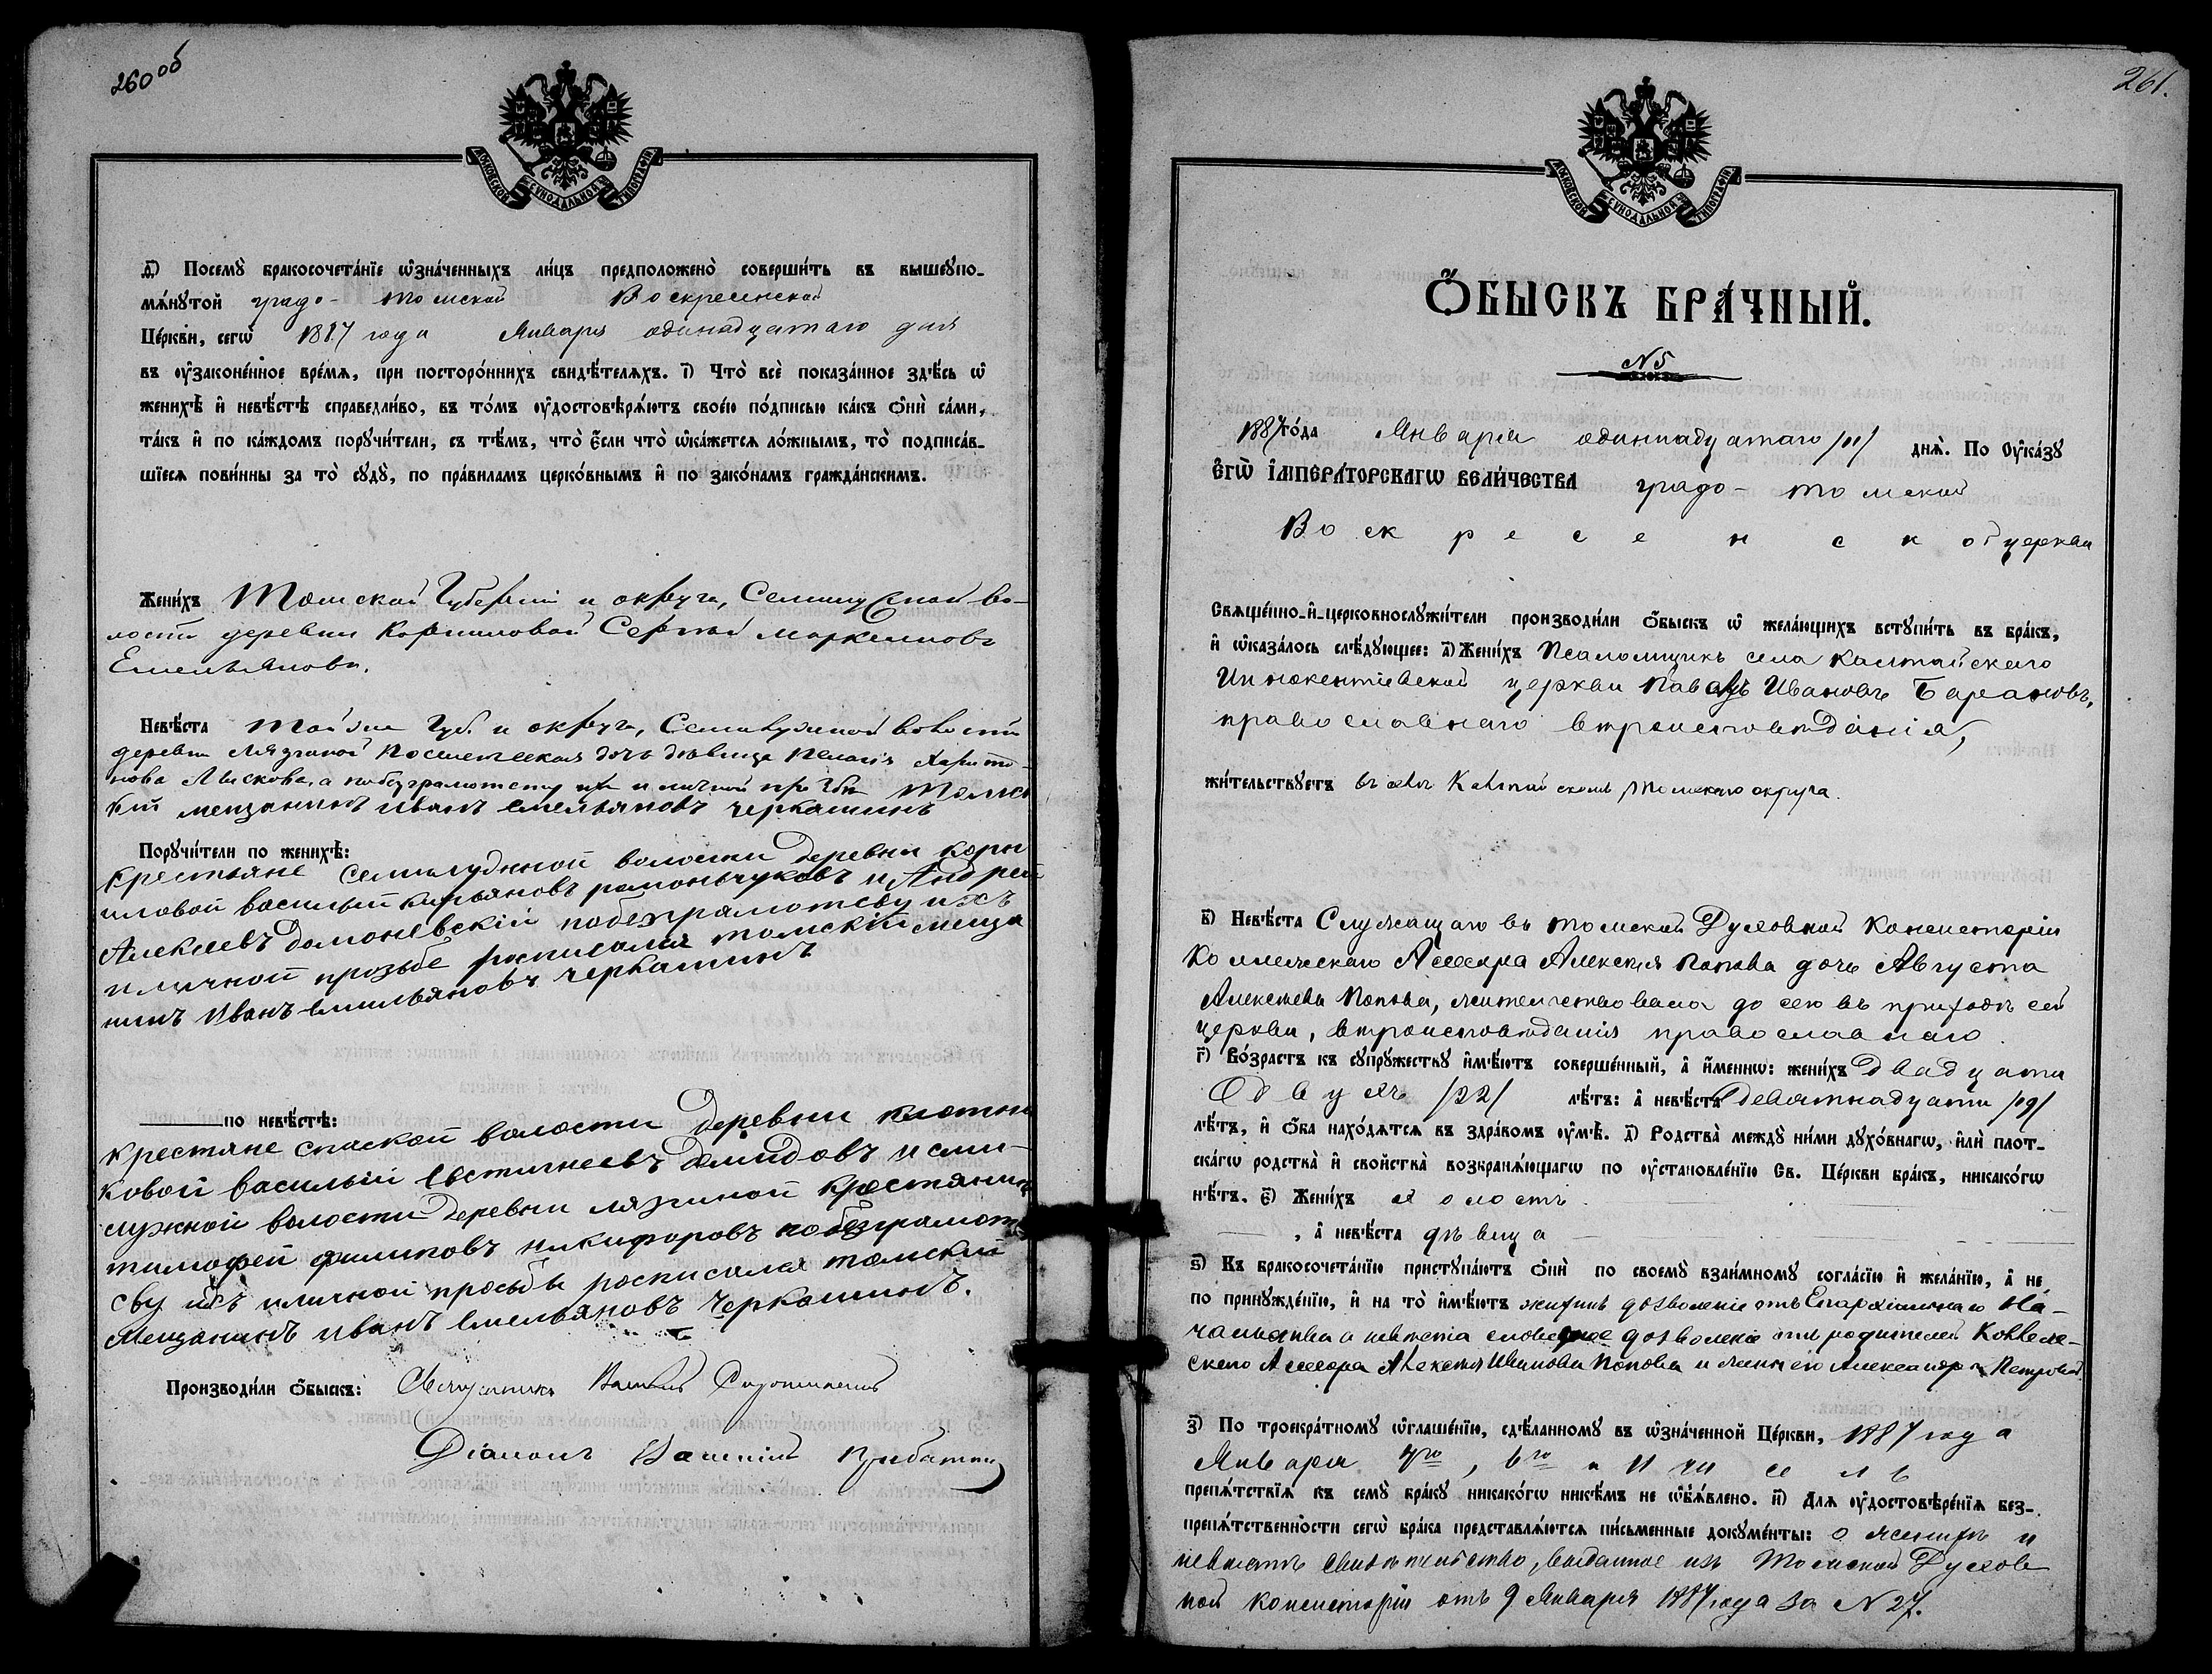 260 об
МОСКОВСКОЙ СѴНОДАЛЬНОЙ ТИПОГРАФІИ
д҃) Посемꙋ̀ бракосочета́нїе ѡ҆зна́ченныхъ ли́цъ предположено̀ соверши́ть въ вышеꙋпо-
мѧ́нꙋтой градо- Томской Воскресенской
Це́ркви, сегѡ̀ 1887 года Января одинадцатаго дня
въ ᲂу҆законе́нное вре́мѧ, при посторо́ннихъ свидѣ́телѧхъ. і҃) Что̀ всѐ показа́нное здѣ́сь ѡ҆
женихѣ̀ и҆ невѣ́стѣ справедли́во, въ то́мъ ᲂу҆достовѣрѧ́ютъ свое́ю по́дписью ка́къ ѻ҆нѝ са́ми,
та́къ и҆ по ка́ждомъ порꙋчи́тели, съ тѣ́мъ, что̀ є҆́сли что̀ ѡ҆ка́жетсѧ ло́жнымъ, то̀ подписа́в-
шїесѧ пови́нны за то̀ сꙋдꙋ̀, по пра́виламъ церко́внымъ и҆ по зако́намъ гражда́нскимъ.
Жени́хъ Томской Губерніи и округа, Семилужной во-
лости деревни Корниловой Сергей Маркеловъ
Емельяновъ.
Невѣ́ста Той же Губ. и округа, Семилужной волости
деревни Лязгиной дочь дѣвица Пелагія Харито-
нова Лыскова, а по безграмотству ихъ и личной прозьбѣ Томс
кій мещанинъ Иванъ Емельяновъ Черкашинъ
Порꙋчи́тели по женихѣ̀:
Крестьяне Семилужной волости деревни Корн
иловой Василий и Андрей
Алексеевъ Домоневскій побезграмотсву ихъ
и личной прозьбе росписался томскій меща
нинъ Иванъ Емильяновъ Черкашинъ
по невѣ́стѣ:
Крестяне Спаской волости деревни
ковой Василий Евстигнеевъ Демидовъ и семи-
лужной волости деревни лязгиной крестянинъ
тимофей филиповъ Никифоровъ побезграмот
сву ихъ иличной просьбы росписался томский
мещанинъ иванъ Емельяновъ Черкашинъ.
Производи́ли ѻ҆́быскъ: Священникъ
Діаконъ
261.
МОСКОВСКОЙ СѴНОДАЛЬНОЙ ТИПОГРАФІИ
Ѻ҆́БЫСКЪ БРА́ЧНЫЙ.
№ 5
1887 го́да Января одиннадцатаго /11/ днѧ̀. По ᲂу҆ка́зꙋ
Є҆ГѠ̀ И҆МПЕРА́ТОРСКАГѠ ВЕЛИ́ЧЕСТВА градо- Томской
Воскресенской церкви
Свѧще́нно-и҆-церковнослꙋжи́тели производи́ли ѻ҆́быскъ ѡ҆ жела́ющихъ встꙋпи́ть въ бра́къ,
и҆ ѡ҆каза́лось слѣ́дꙋющее: а҃) Жени́хъ Псаломщикъ села Калтайскаго
Иннокентіевской церкви Павелъ Ивановъ Барановъ,
православнаго вѣроисповѣданія,
жи́тельствꙋетъ въ селѣ Калтайскомъ, Томскаго округа.
в҃) Невѣ́ста Служащаго въ Томской Духовной Консисторіи
Коллежскаго Асессора Алексея Попова дочь Августа
Алексеева Попова, жительствовала до сего въ приходѣ сей
церкви, вѣроисповѣданія православнаго.
г҃) Во́зрастъ къ сꙋпрꙋ́жествꙋ и҆мѣ́ютъ соверше́нный, а҆ и҆́меннѡ: жени́хъ двадцати
двухъ /22/ лѣ́тъ: а҆ невѣ́ста девятнадцати /19/
лѣ́тъ, и҆ ѻ҆́ба нахо́дѧтсѧ въ здра́вомъ ᲂу҆мѣ̀. д҃) Родства̀ междꙋ̀ ни́ми дꙋхо́внагѡ, и҆лѝ пло́т-
скагѡ родства̀ и҆ свойства̀ возбранѧ́ющагѡ по ᲂу҆становле́нїю Св. Це́ркви бра́къ, никако́гѡ
нѣ́тъ. є҃) Жени́хъ холостъ
, а҆ невѣ́ста дѣвица
ѕ҃) Къ бракосочета́нїю пристꙋпа́ютъ ѻ҆нѝ по своемꙋ̀ взаи́мномꙋ согла́сїю и҆ жела́нїю, а҆ не
по принꙋжде́нїю, и҆ на то̀ и҆мѣ́ютъ женихъ дозволеніе отъ Епархіальнаго На-
чальства и невѣста словесное дозволеніе отъ родителей Коллеж-
скаго Асессора Алексея Иванова Попова и жены его Александры Петровой.
з҃) По троекра́тномꙋ ѡ҆глаше́нїю, сдѣ́ланномꙋ въ ѡ҆зна́ченной Це́ркви, 1887 года
Января 4го, 6го и 11 чиселъ
препѧ́тствїѧ къ семꙋ̀ бра́кꙋ никако́гѡ никѣ́мъ не ѡ҆б̾ѧ́влено. и҃) Длѧ ᲂу҆достовѣре́нїѧ без-
препѧ́тственности сегѡ̀ бра́ка представлѧ́ютсѧ пи́сьменные докꙋме́нты: о женихѣ и
невѣстѣ свидѣтельство, выданное изъ Томской Духов
ной Консисторіи отъ 9 Января 1887 года за № 27.